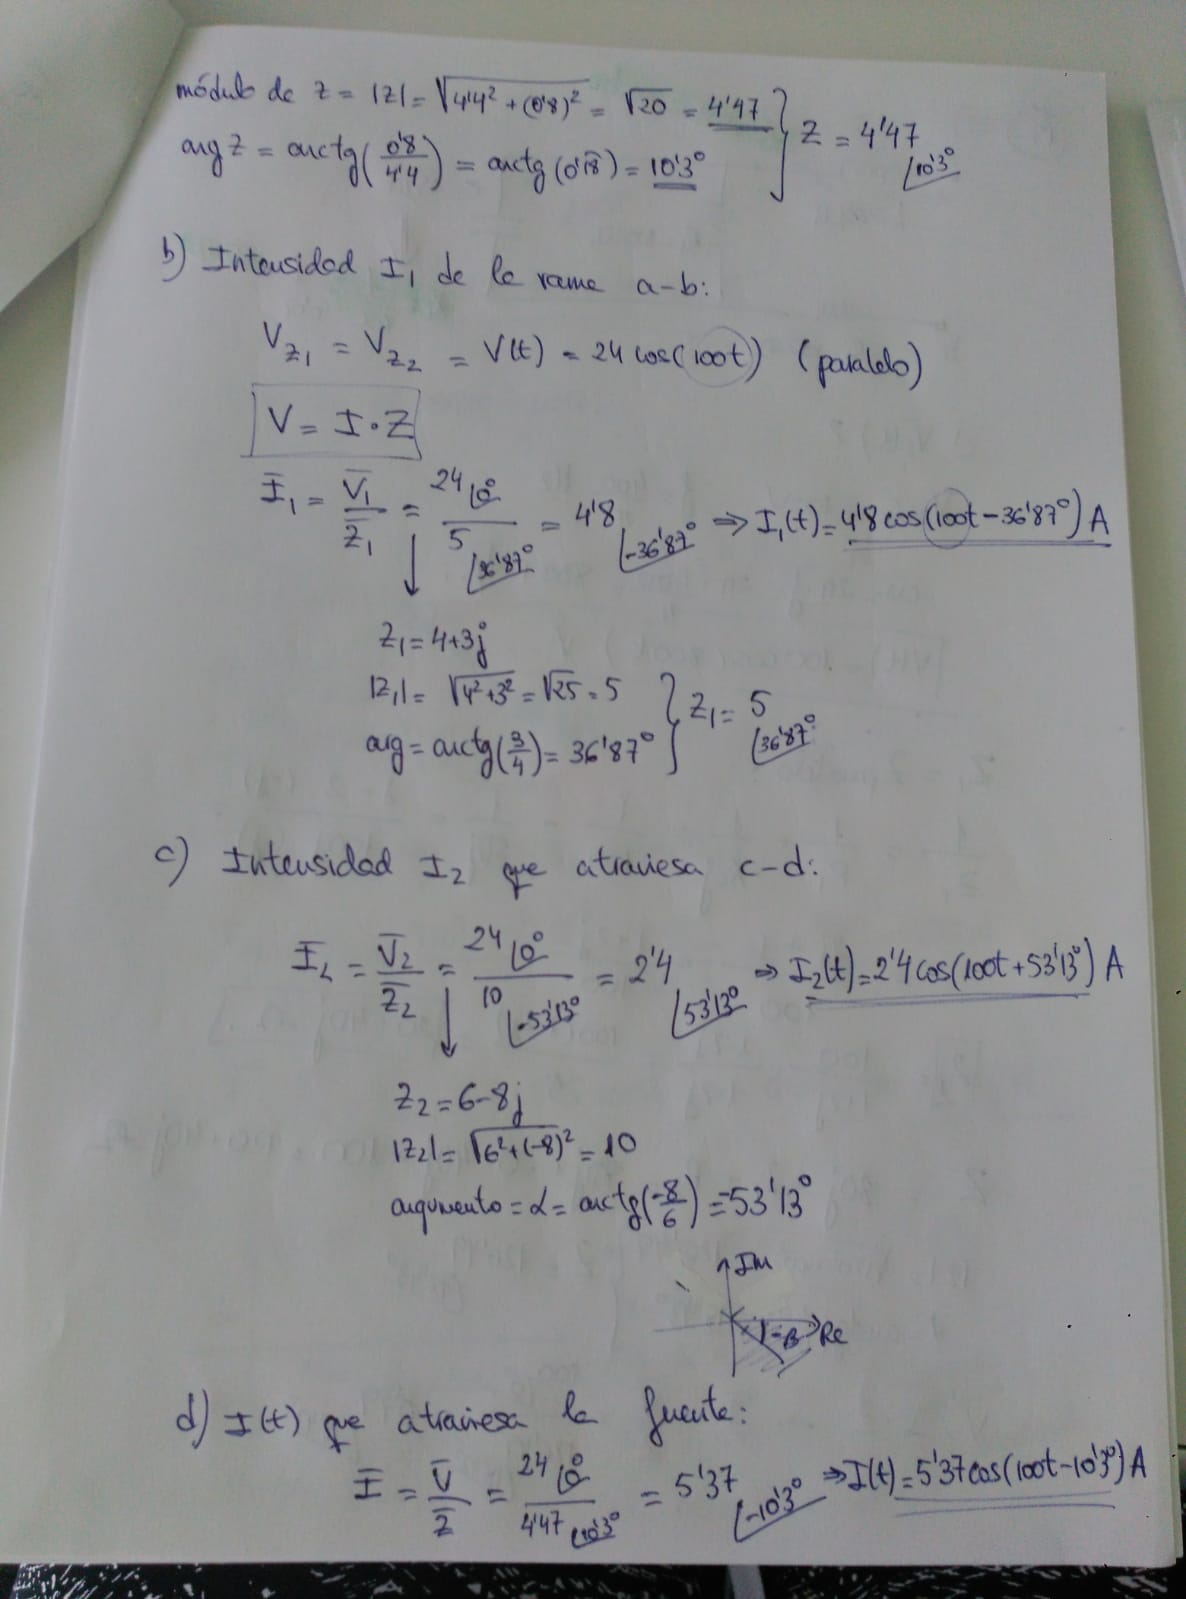 módulo de z = |z| = √4'4² + (0'8)² = √20 = 4'47 } Z = 4'47 ∟10'3°
arg z = arctg(0'8/4'4) = arctg(0'18) = 10'3°
b) Intensidad I₁ de la rama a-b:
V_z₁ = V_z₂ = V(t) = 24 cos(100t) (paralelo)
V = I · Z
Ī₁ = V̄₁/Z̄₁ = 24 ∟0° / 5 ∟36'87° = 4'8 ∟-36'87° ⇒ I₁(t) = 4'8 cos(100t - 36'87°) A
z₁ = 4+3j
|z₁| = √4²+3² = √25 = 5 } z₁ = 5 ∟36'87°
arg = arctg(3/4) = 36'87°
c) Intensidad I₂ que atraviesa c-d:
Ī₂ = V̄₂/Z̄₂ = 24 ∟0° / 10 ∟-53'13° = 2'4 ∟53'13° ⇒ I₂(t) = 2'4 cos(100t + 53'13°) A
z₂ = 6-8j
|z₂| = √6²+(-8)² = 10
argumento = α = arctg(-8/6) = -53'13°
Im
-β Re
d) I(t) que atraviesa la fuente:
Ī = V̄/Z̄ = 24 ∟0° / 4'47 ∟10'3° = 5'37 ∟-10'3° ⇒ I(t) = 5'37 cos(100t - 10'3°) A